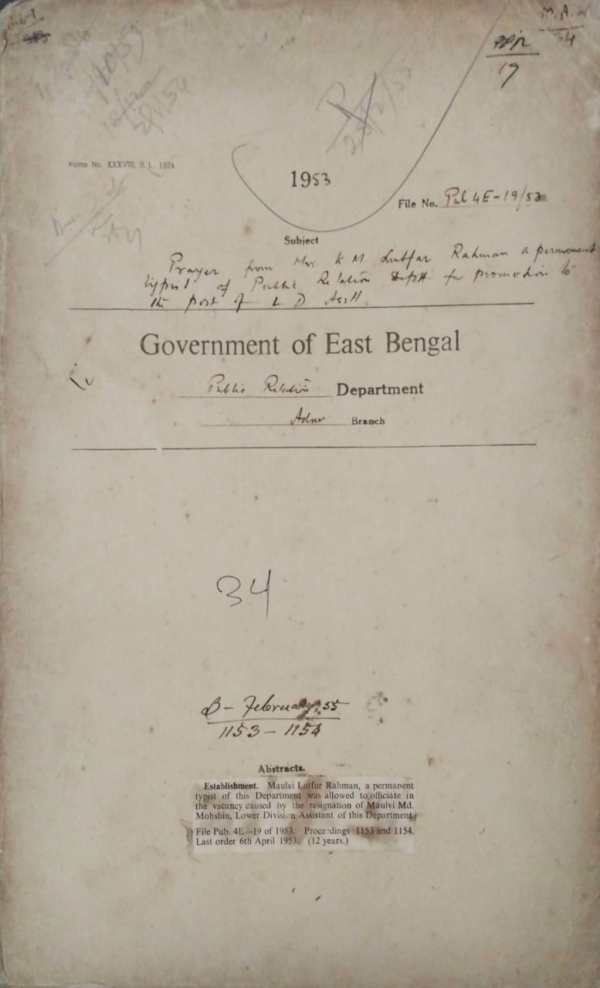 Apr
17
Form No. XXXVIII, S I, 1924
1953
File No. Pub 4E-19/53
Subject
Prayer from Mr. K M Lutfar Rahman a permanent
typist of Public Relation Deptt. for promotion to
the post of L D Asstt.
Government of East Bengal
Public Relation Department
Branch
34
B - February, 55
1153 - 1154
Abstracts.
Establishment. Maulvi Lutfur Rahman, a permanent
typist of this Department was allowed to officiate in
the vacancy caused by the resignation of Maulvi Md.
Mohshin, Lower Division Assistant of this Department.
File Pub. 4E-19 of 1953. Proceedings 1153 and 1154.
Last order 6th April 1953. (12 years.)